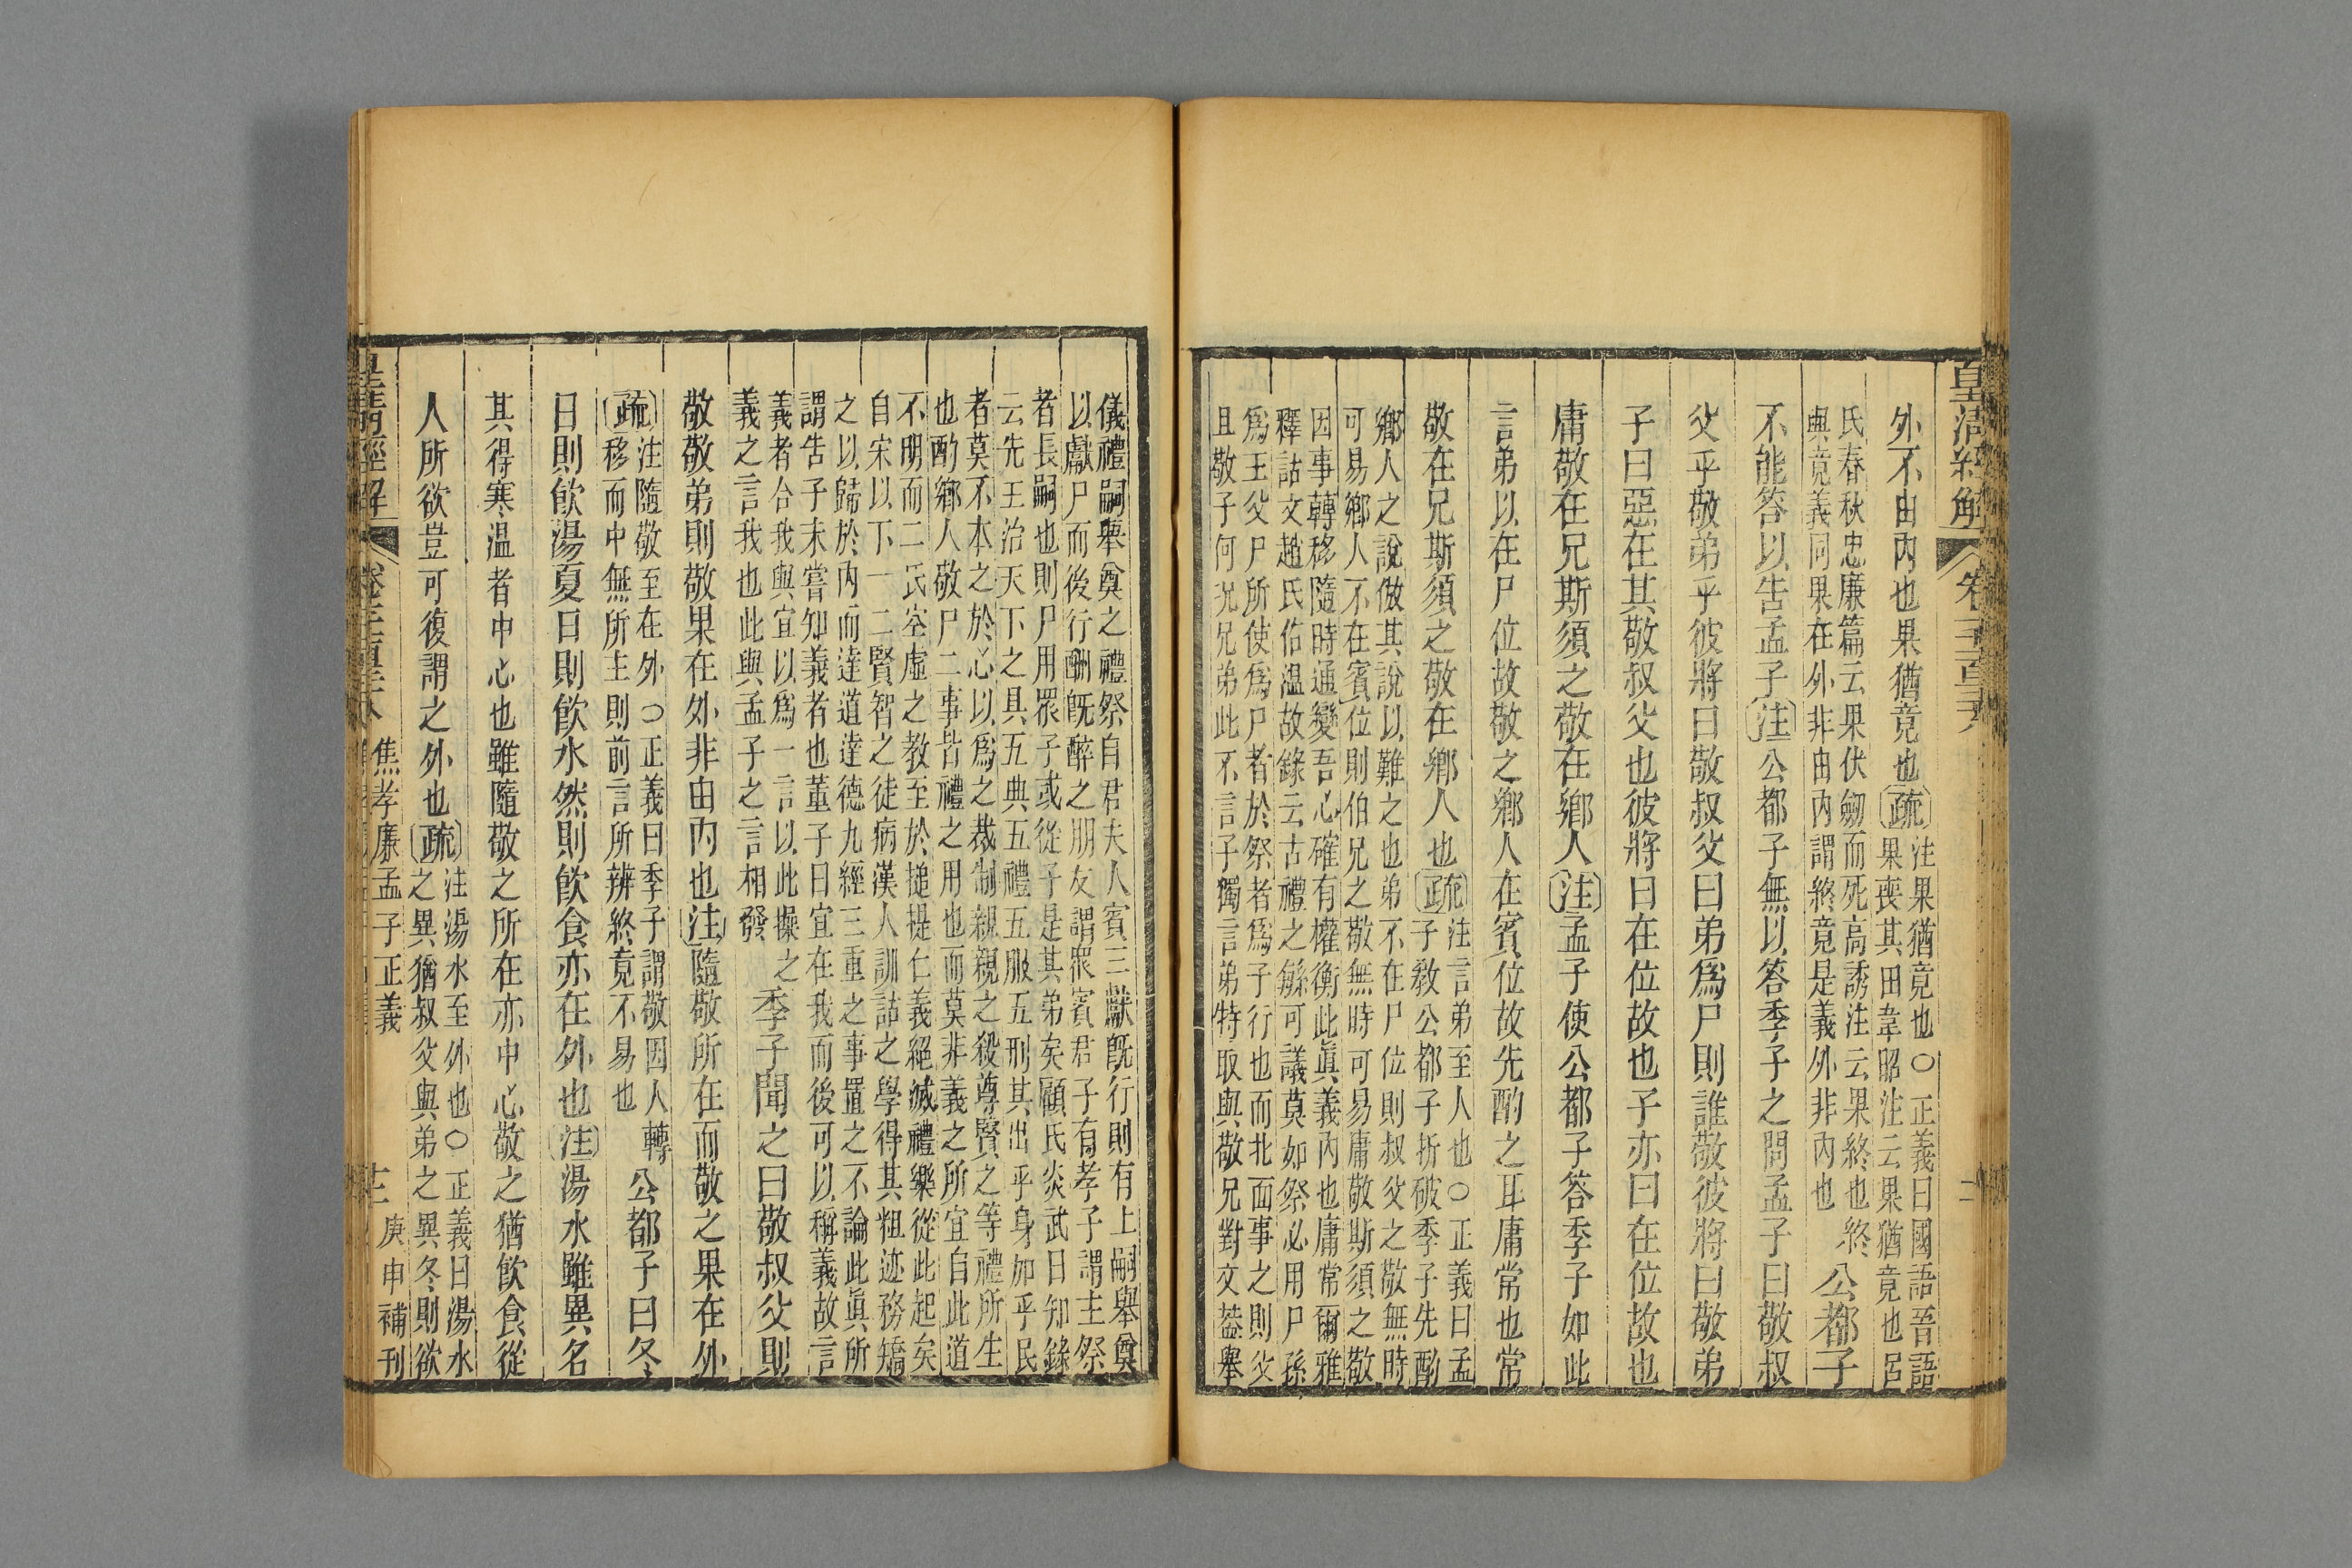 皇清經解
卷一千百
外不由內也果猶竟也疏注果猶竟也○正義曰國語吾語
果喪其田韋昭注云果猶竟也呂
氏春秋忠廉篇云果伏劒而死高誘注云果終也終
與竟義同果在外非由內謂終竟是義外非內也公都子
不能答以告孟子注公都子無以答季子之問孟子曰敬叔
父乎敬弟乎彼將曰敬叔父曰弟爲尸則誰敬彼將曰敬弟
子曰惡在其敬叔父也彼將曰在位故也子亦曰在位故也
庸敬在兄斯須之敬在鄉人注孟子使公都子答季子如此
言弟以在尸位故敬之鄉人在賓位故先酌之耳庸常也常
敬在兄斯須之敬在鄉人也疏注言弟至人也○正義曰孟
子敎公都子折破季子先酌
鄉人之說倣其說以難之也弟不在尸位則叔父之敬無時
可易鄉人不在賓位則伯兄之敬無時可易庸敬斯須之敬
因事轉移隨時通變吾心確有權衡此眞義內也庸常爾雅
釋詁文趙氏佑溫故錄云古禮之繇可議莫如祭必用尸孫
爲王父尸所使爲尸者於祭者爲子行也而北面事之則父
且敬子何況兄弟此不言子獨言弟特取與敬兄對文葢舉
儀禮嗣舉奠之禮祭自君夫人賓三獻旣行則有上嗣舉奠
以獻尸而後行酬旣醉之朋友謂衆賓君子有孝子謂主祭
者長嗣也則尸用眾子或從子是其弟矣顧氏炎武日知錄
云先王治天下之具五典五禮五服五刑其出乎身加乎民
者莫不本之於心以爲之裁制親親之殺尊賢之等禮所生
也酌鄉人敬尸二事皆禮之用也而莫非義之所宜自此道
不明而二氏空虛之教至於搥提仁義絕滅禮樂從此起矣
自宋以下一二賢智之徒病漢人訓詁之學得其粗迹務矯
之以歸於內而達道達德九經三重之事置之不論此眞所
謂告子未嘗知義者也董子曰宜在我而後可以稱義故言
義者合我與宜以爲一言以此操之
義之言我也此與孟子之言相發季子聞之曰敬叔父則
敬敬弟則敬果在外非由內也注隨敬所在而敬之果在外
疏注隨敬至在外○正義曰季子謂敬因人轉
移而中無所主則前言所辨終竟不易也公都子曰冬
日則飮湯夏日則飮水然則飮食亦在外也注湯水雖異名
其得寒溫者中心也雖隨敬之所在亦中心敬之猶飮食從
人所欲豈可復謂之外也疏注湯水至外也○正義曰湯水
之異猶叔父與弟之異冬則欲
皇淸經解
焦孝廉孟子正義
庚申補刊